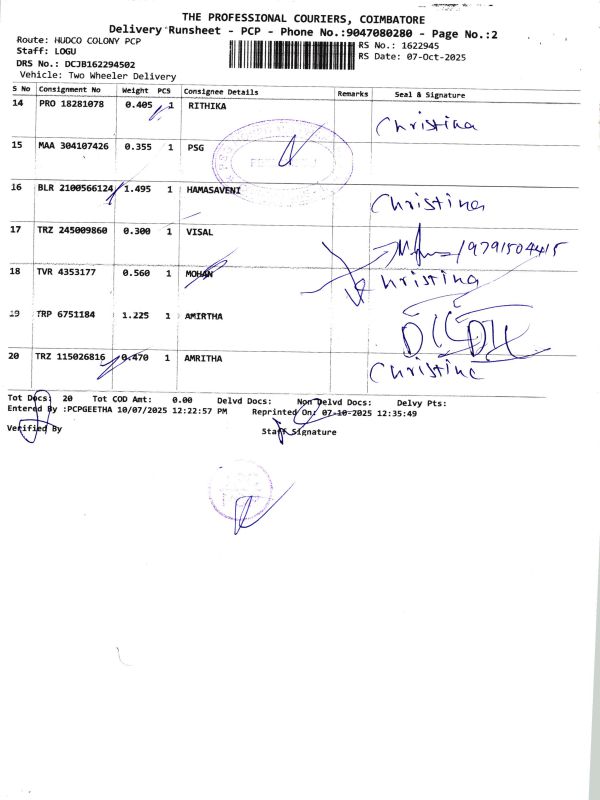 THE PROFESSIONAL COURIERS, COIMBATORE
Delivery Runsheet - PCP - Phone No.:9047080280 - Page No.:2
Route: HUDCO COLONY PCP
RS No.: 1622945
Staff: LOGU
RS Date: 07-Oct-2025
DRS No.: DCJB162294502
Vehicle: Two Wheeler Delivery
S No Consignment No Weight PCS Consignee Details Remarks Seal & Signature
14 PRO 18281078 0.405 1 RITHIKA Christina
15 MAA 304107426 0.355 1 PSG
16 BLR 2100566124 1.495 1 HAMASAVENI Christina
17 TRZ 245009860 0.300 1 VISAL 9791504415
18 TVR 4353177 0.560 1 MOHAN Christina
19 TRP 6751184 1.225 1 AMIRTHA
20 TRZ 115026816 0.470 1 AMRITHA Christine
Tot Docs: 20 Tot COD Amt: 0.00 Delvd Docs: Non Delvd Docs: Delvy Pts:
Entered By :PCPGEETHA 10/07/2025 12:22:57 PM Reprinted On: 07-10-2025 12:35:49
Verified By
Staff Signature